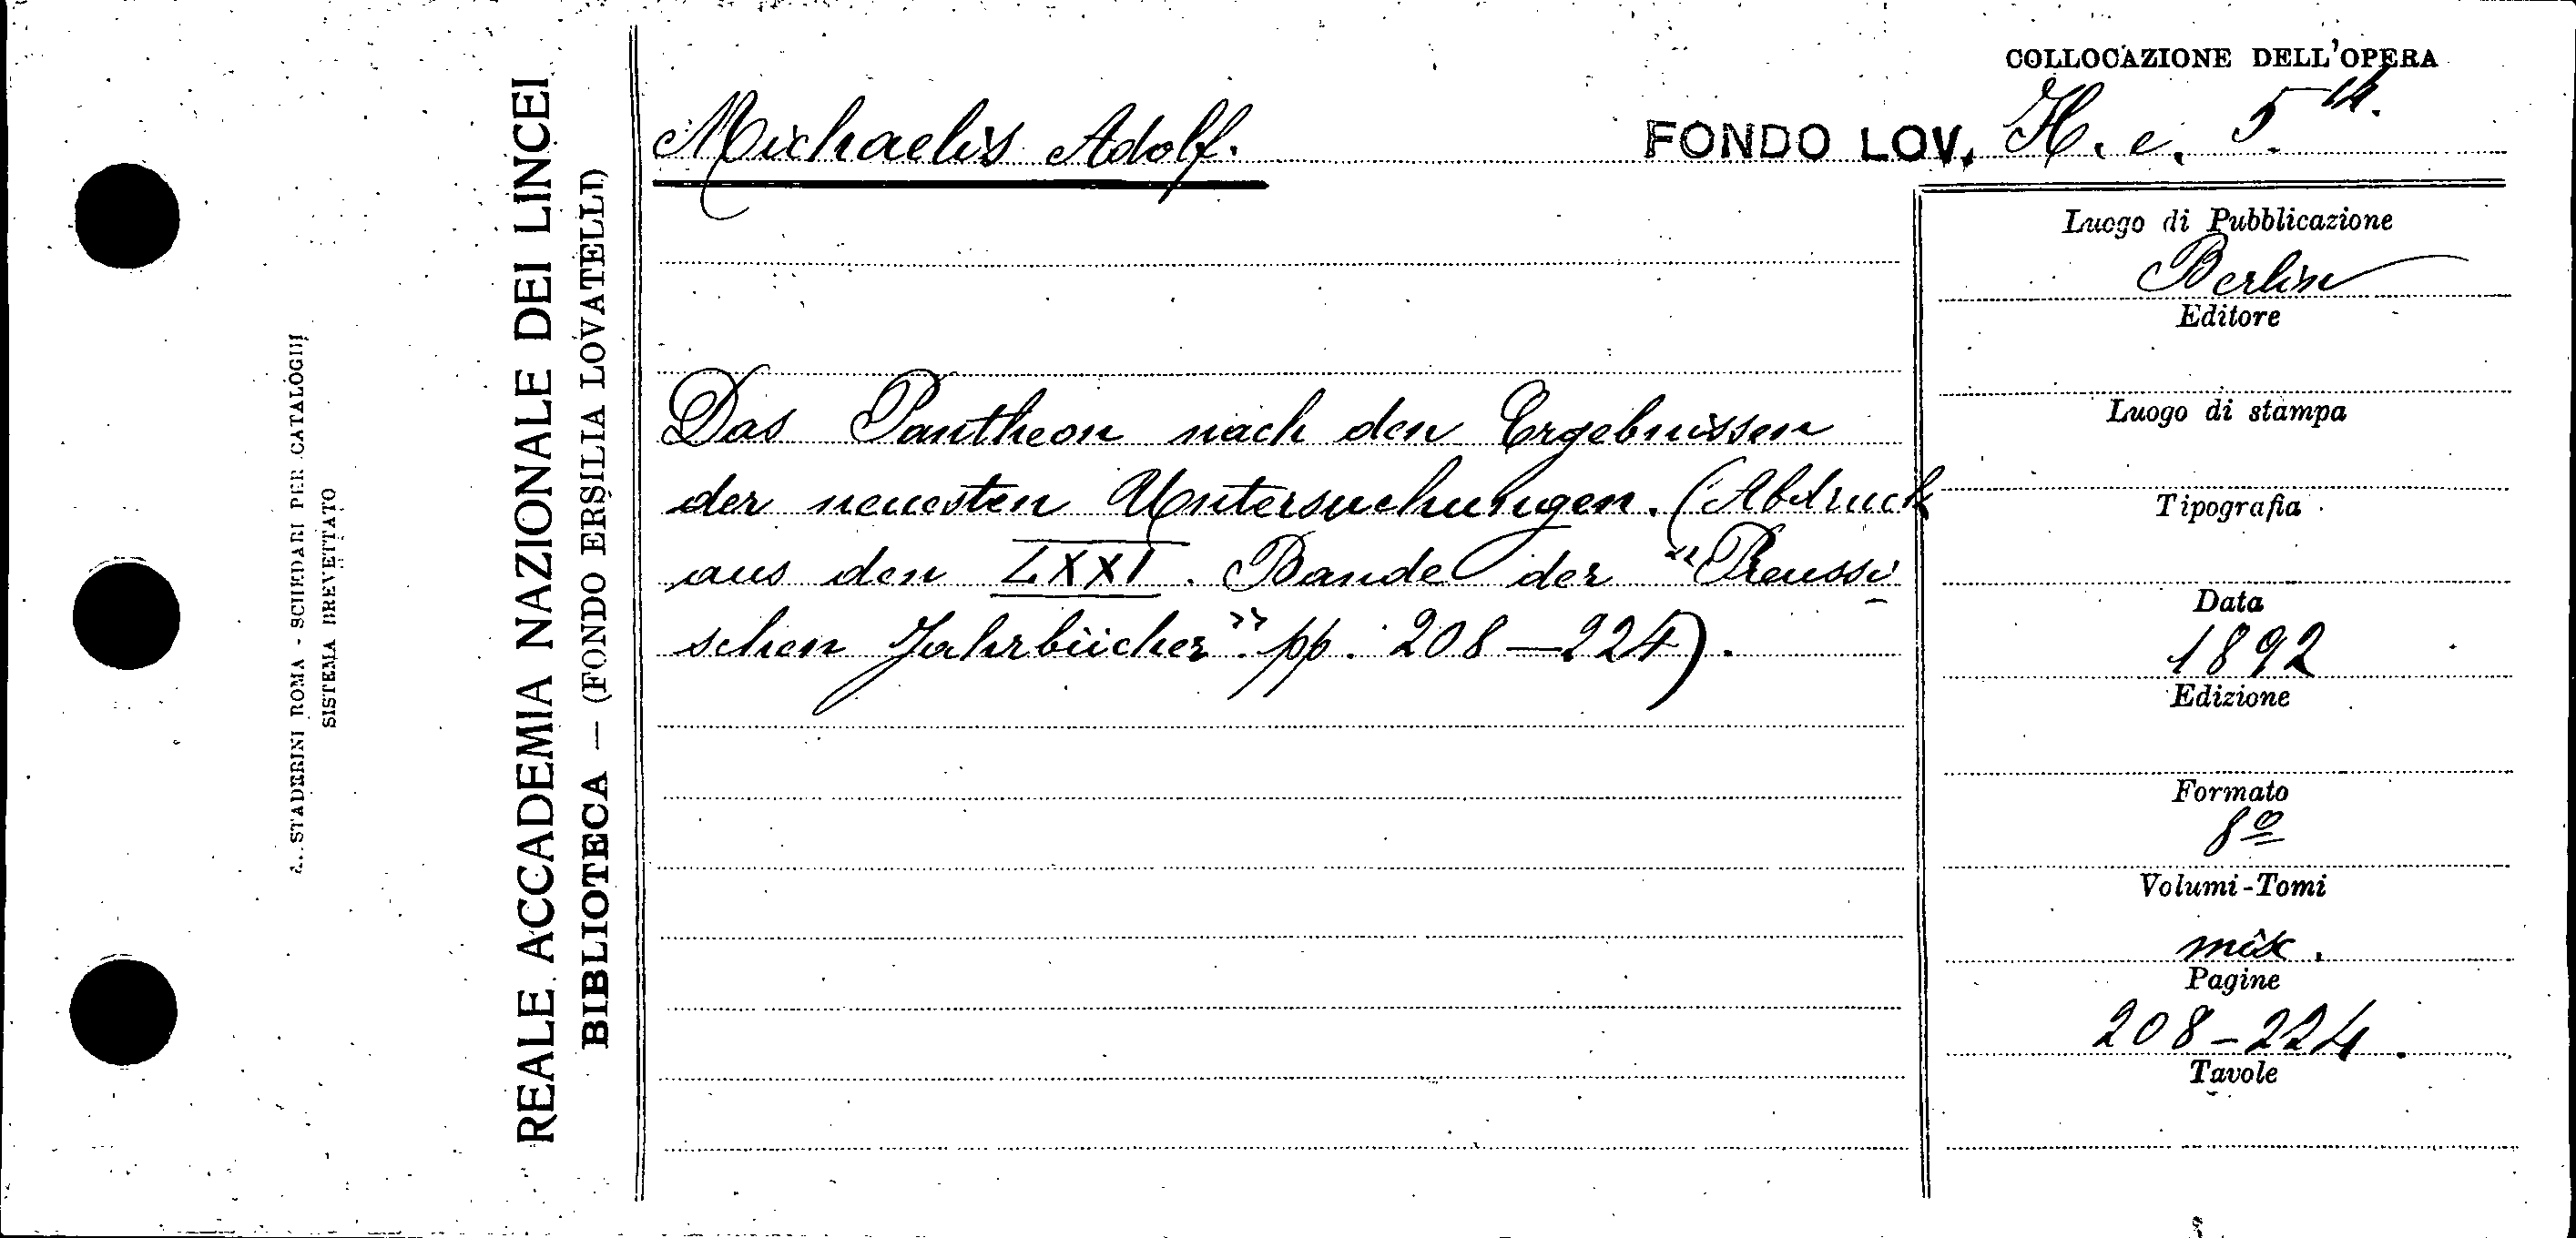 COLLOCAZIONE DELL'OPERA
Michaelis Adolf.
FONDO LOV. H. e. 5
REALE ACCADEMIA NAZIONALE DEI LINCEI
BIBLIOTECA — (FONDO ERSILIA LOVATELLI)
A. STADERINI ROMA - SCHEDARI PER CATALOGHI
SISTEMA BREVETTATO
Das Pantheon nach den Ergebnissen
der neuesten Untersuchungen. (Abdruck
aus den LXXI. Bande der "Preussi
schen Jahrbücher" pp. 208-224).
Luogo di Pubblicazione
Berlin
Editore
Luogo di stampa
Tipografia
Data
1892
Edizione
Formato
8º
Volumi-Tomi
misc.
Pagine
208-224.
Tavole